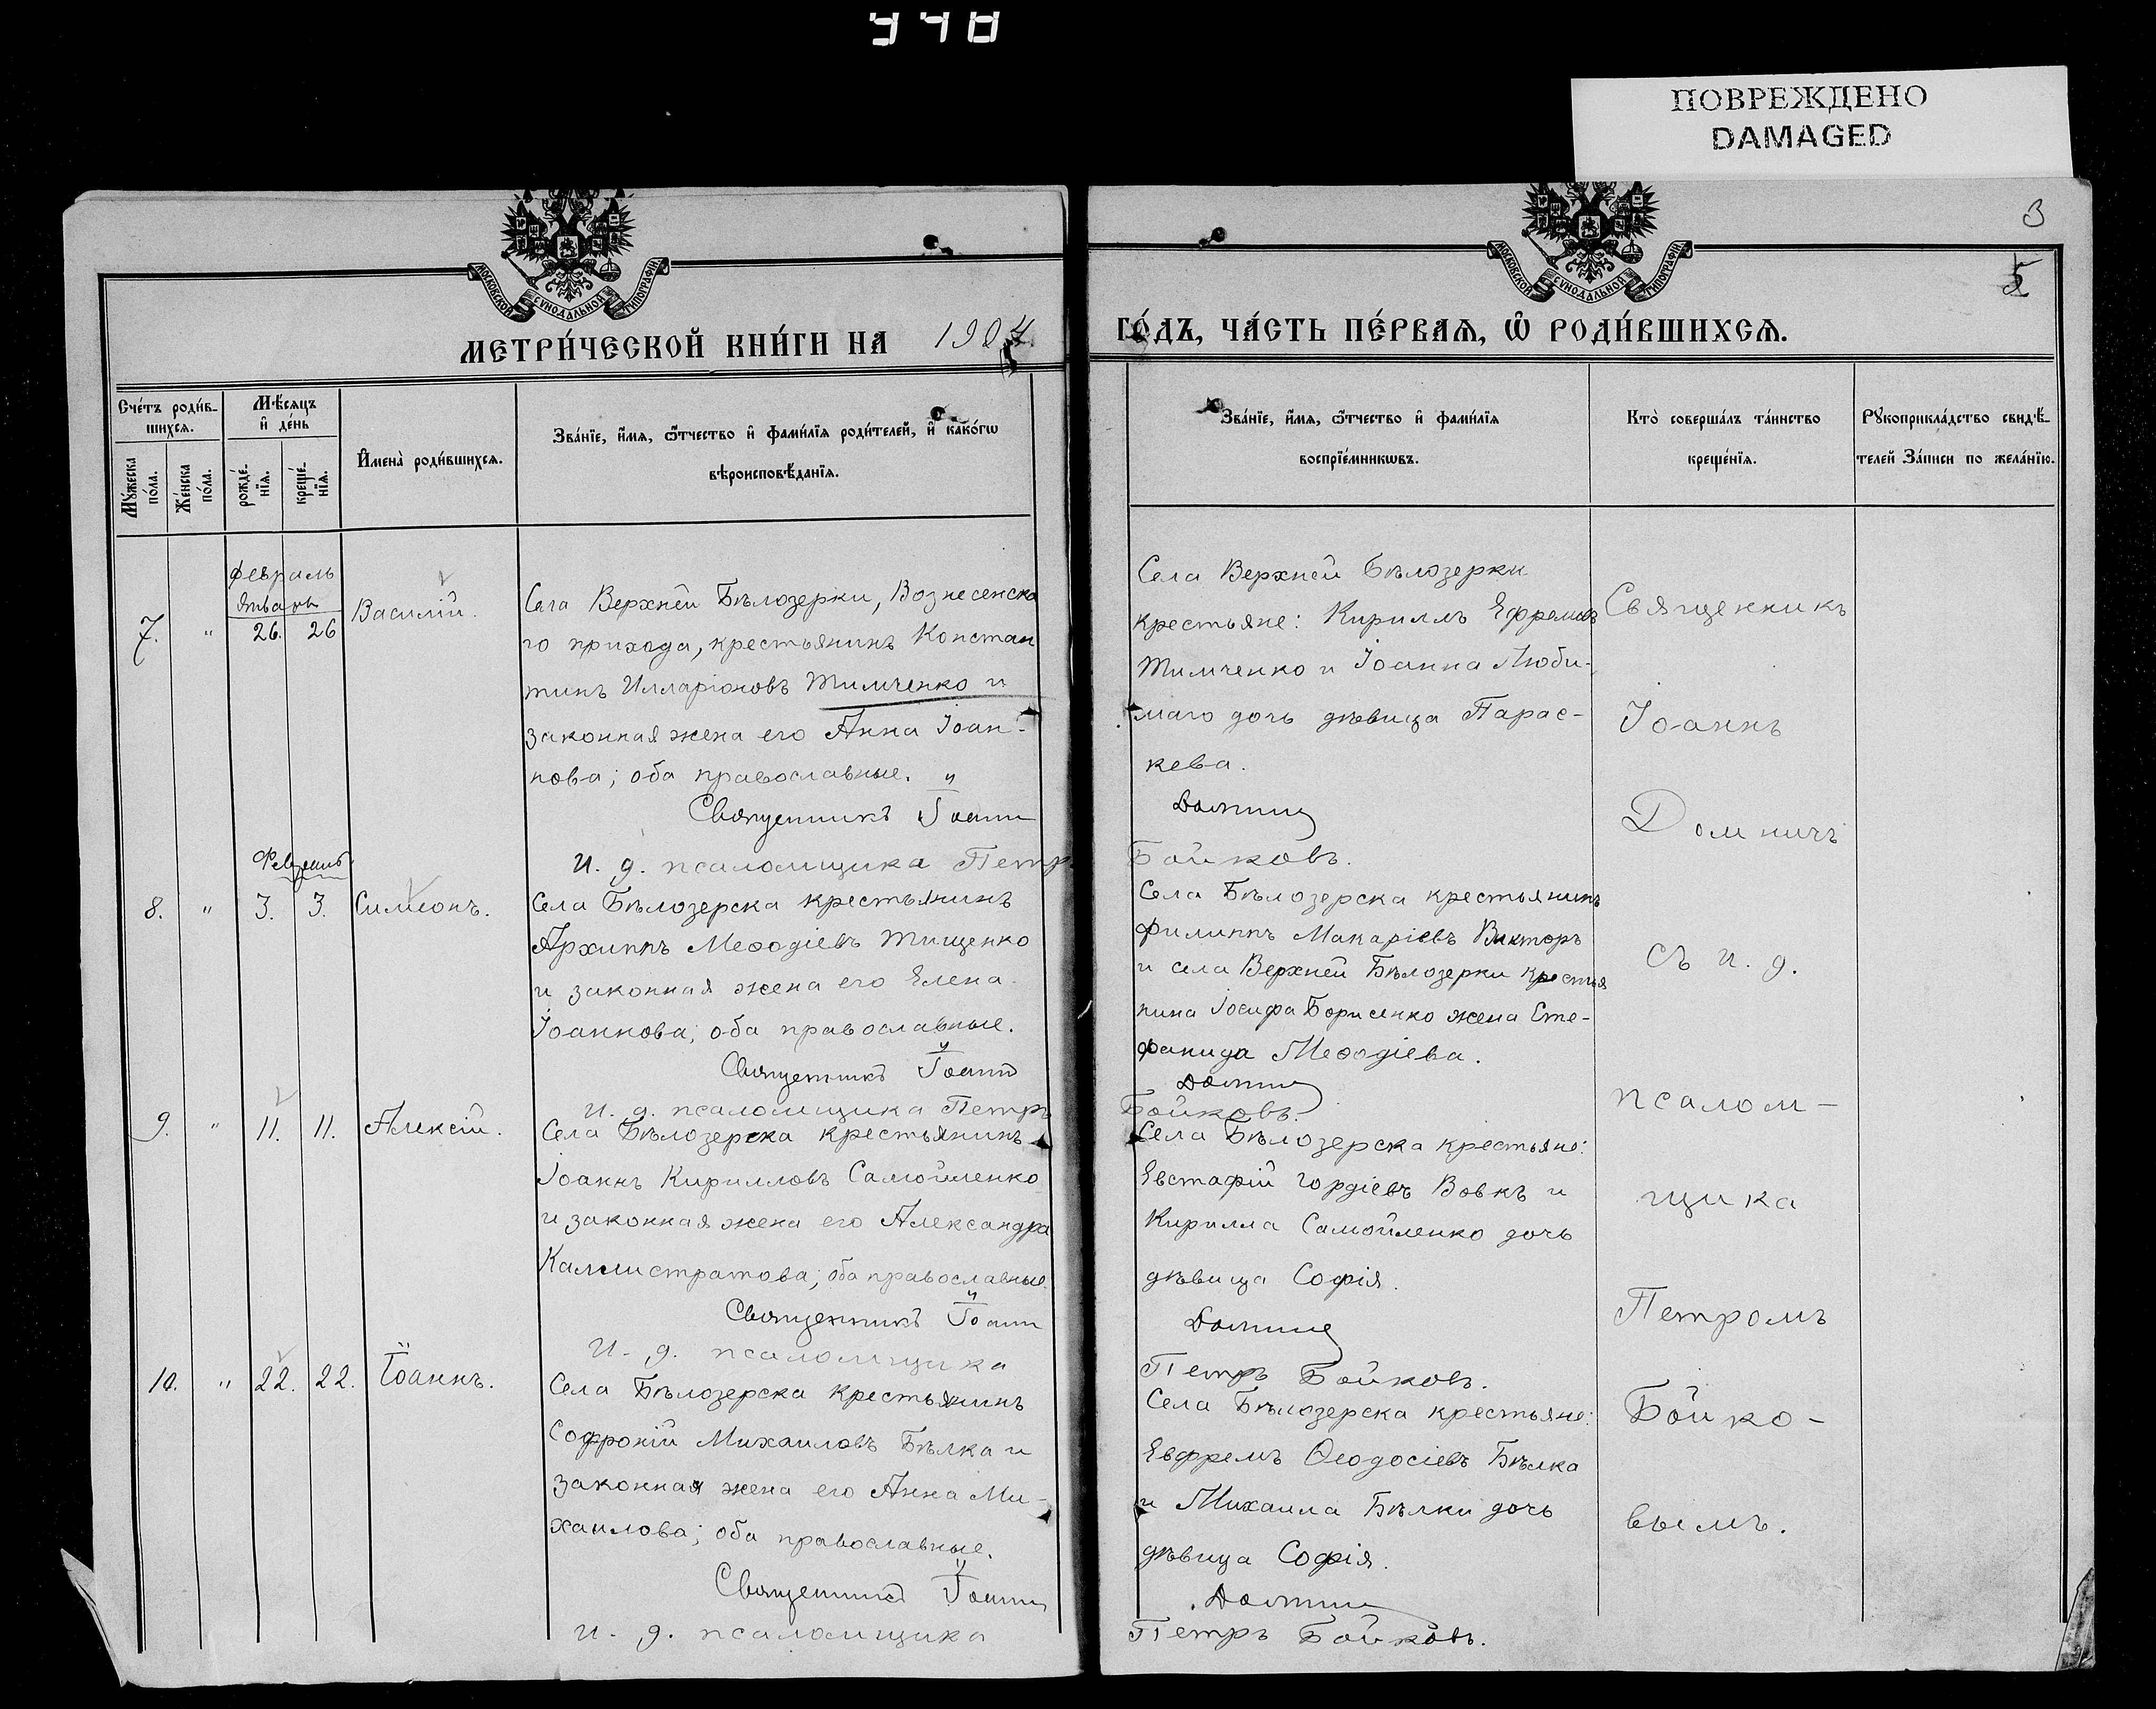 948
ПОВРЕЖДЕНО
DAMAGED
3
5
МОСКОВСКОЙ СѴНОДАЛЬНОЙ ТИПОГРАФІИ
МОСКОВСКОЙ СѴНОДАЛЬНОЙ ТИПОГРАФІИ
МЕТРИ́ЧЕСКОЙ КНИ́ГИ НА 1904
ГО́ДЪ, ЧА́СТЬ ПЕ́РВАѦ, Ѡ҆ РОДИ́ВШИХСѦ.
Сче́тъ роди́в-
шихсѧ.
Мꙋ́жеска
по́ла.
Же́нска
по́ла.
Мѣ́сѧцъ
и҆ де́нь
рожде́-
нїѧ.
креще́-
нїѧ.
И҆мена̀ роди́вшихсѧ.
Зва́нїе, и҆́мѧ, ѻ҆́тчество и҆ фами́лїѧ роди́телей, и҆ како́гѡ
вѣроисповѣ́данїѧ.
Зва́нїе, и҆́мѧ, ѻ҆́тчество и҆ фами́лїѧ
воспрїе́мникѡвъ.
Кто̀ соверша́лъ та́инство
креще́нїѧ.
Рꙋкоприкла́дство свидѣ́-
телей За́писи по жела́нїю.
Февраль
Январь
7. " 26. 26 Василій.
Села Верхней Бѣлозерки, Вознесенска
го прихода, крестьянинъ Констан
тинъ Илларіоновъ Тимченко и
законная жена его Анна Іоан-
нова; оба православные.
Священникъ Іоаннъ
И. д. псаломщика Петръ
Села Верхней Бѣлозерки
крестьяне: Кириллъ Ефремовъ
Тимченко и Іоанна Люби-
маго дочь дѣвица Парас-
кева.
Домничъ
Бойковъ.
Февраль
8. " 3. 3. Симеонъ.
Села Бѣлозерска крестьянинъ
Архиппъ Меѳодіевъ Тищенко
и законная жена его Елена
Іоаннова; оба православные.
Священникъ Іоаннъ
И. д. псаломщика Петръ
Села Бѣлозерска крестьянинъ
Филиппъ Макаріевъ Викторъ
и села Верхней Бѣлозерки крестья
нина Іосифа Борисенко жена Сте-
фанида Меѳодіева.
Домничъ
Бойковъ.
9. " 11. 11. Алексій.
Села Бѣлозерска крестьянинъ
Іоаннъ Кирилловъ Самойленко
и законная жена его Александра
Каллистратова; оба православные.
Священникъ Іоаннъ
И. д. псаломщика
Села Бѣлозерска крестьяне:
Евстафій Гордіевъ Вовкъ и
Кирилла Самойленко дочь
дѣвица Софія.
Домничъ
Петръ Бойковъ.
10. " 22. 22. Іоаннъ.
Села Бѣлозерска крестьянинъ
Софроній Михаиловъ Бѣлка и
законная жена его Анна Ми-
хаилова; оба православные.
Священникъ Іоаннъ
И. д. псаломщика
Села Бѣлозерска крестьяне:
Евфремъ Ѳеодосіевъ Бѣлка
и Михаила Бѣлки дочь
дѣвица Софія.
Домничъ
Петръ Бойковъ.
Священникъ
Іоаннъ
Домничъ
съ и. д.
псалом-
щика
Петромъ
Бойко-
вымъ.